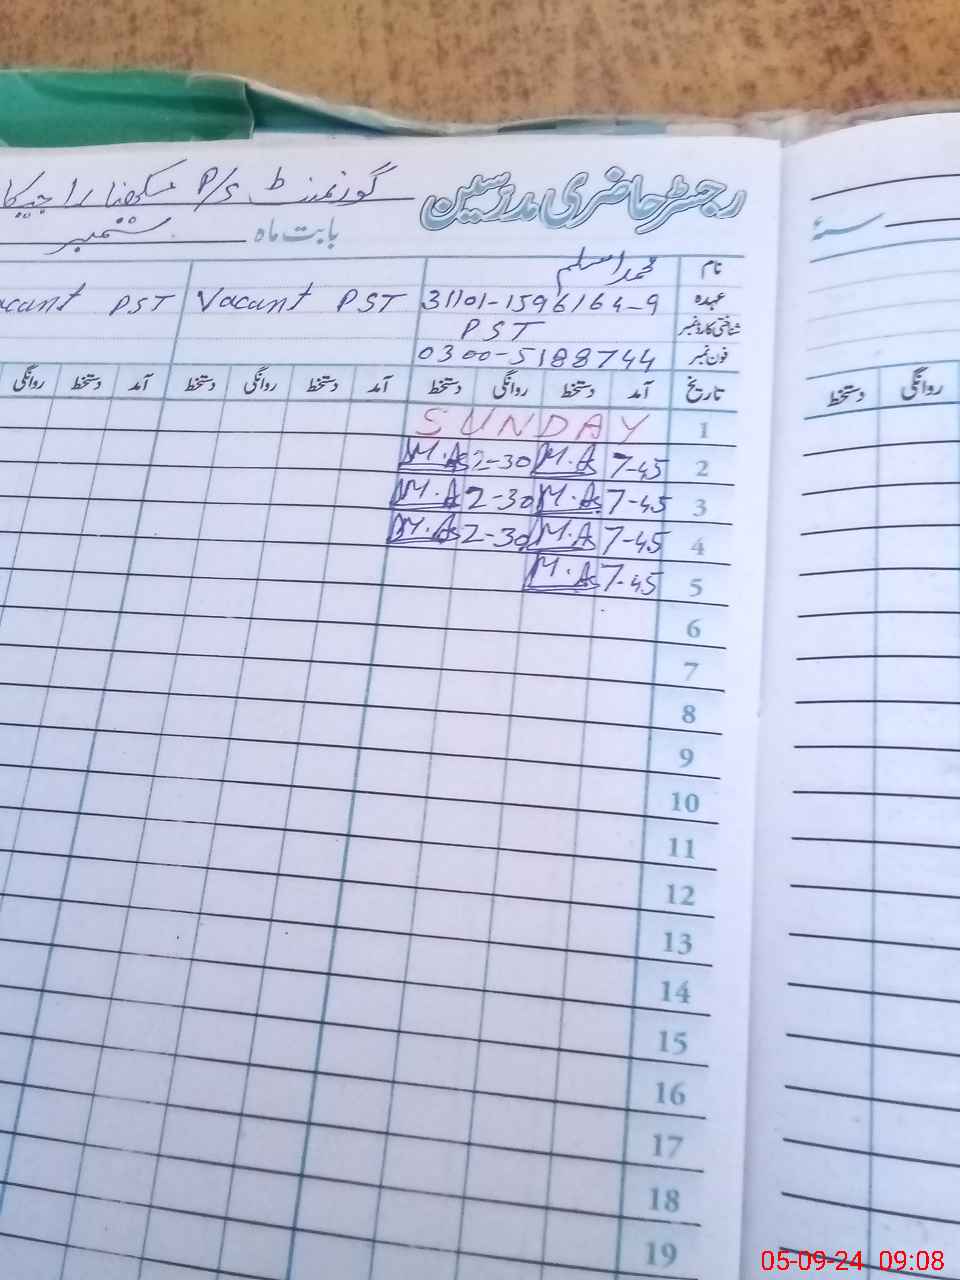 رجسٹر حاضری مدرسین گورنمنٹ P/S
سنہ
بابت ماہ ستمبر
نام محمد اسلم
عہدہ 31101-1596164-9 Vacant PST Vacant PST
شناختی کارڈ نمبر PST
فون نمبر 0300-5188744
تاریخ آمد دستخط روانگی دستخط آمد دستخط روانگی دستخط آمد دستخط روانگی
روانگی دستخط
1 SUNDAY
2 7-45 M.As 2-30 M.As
3 7-45 M.As 2-30 M.As
4 7-45 M.As 2-30 M.As
5 7-45 M.As
6
7
8
9
10
11
12
13
14
15
16
17
18
19
05-09-24 09:08